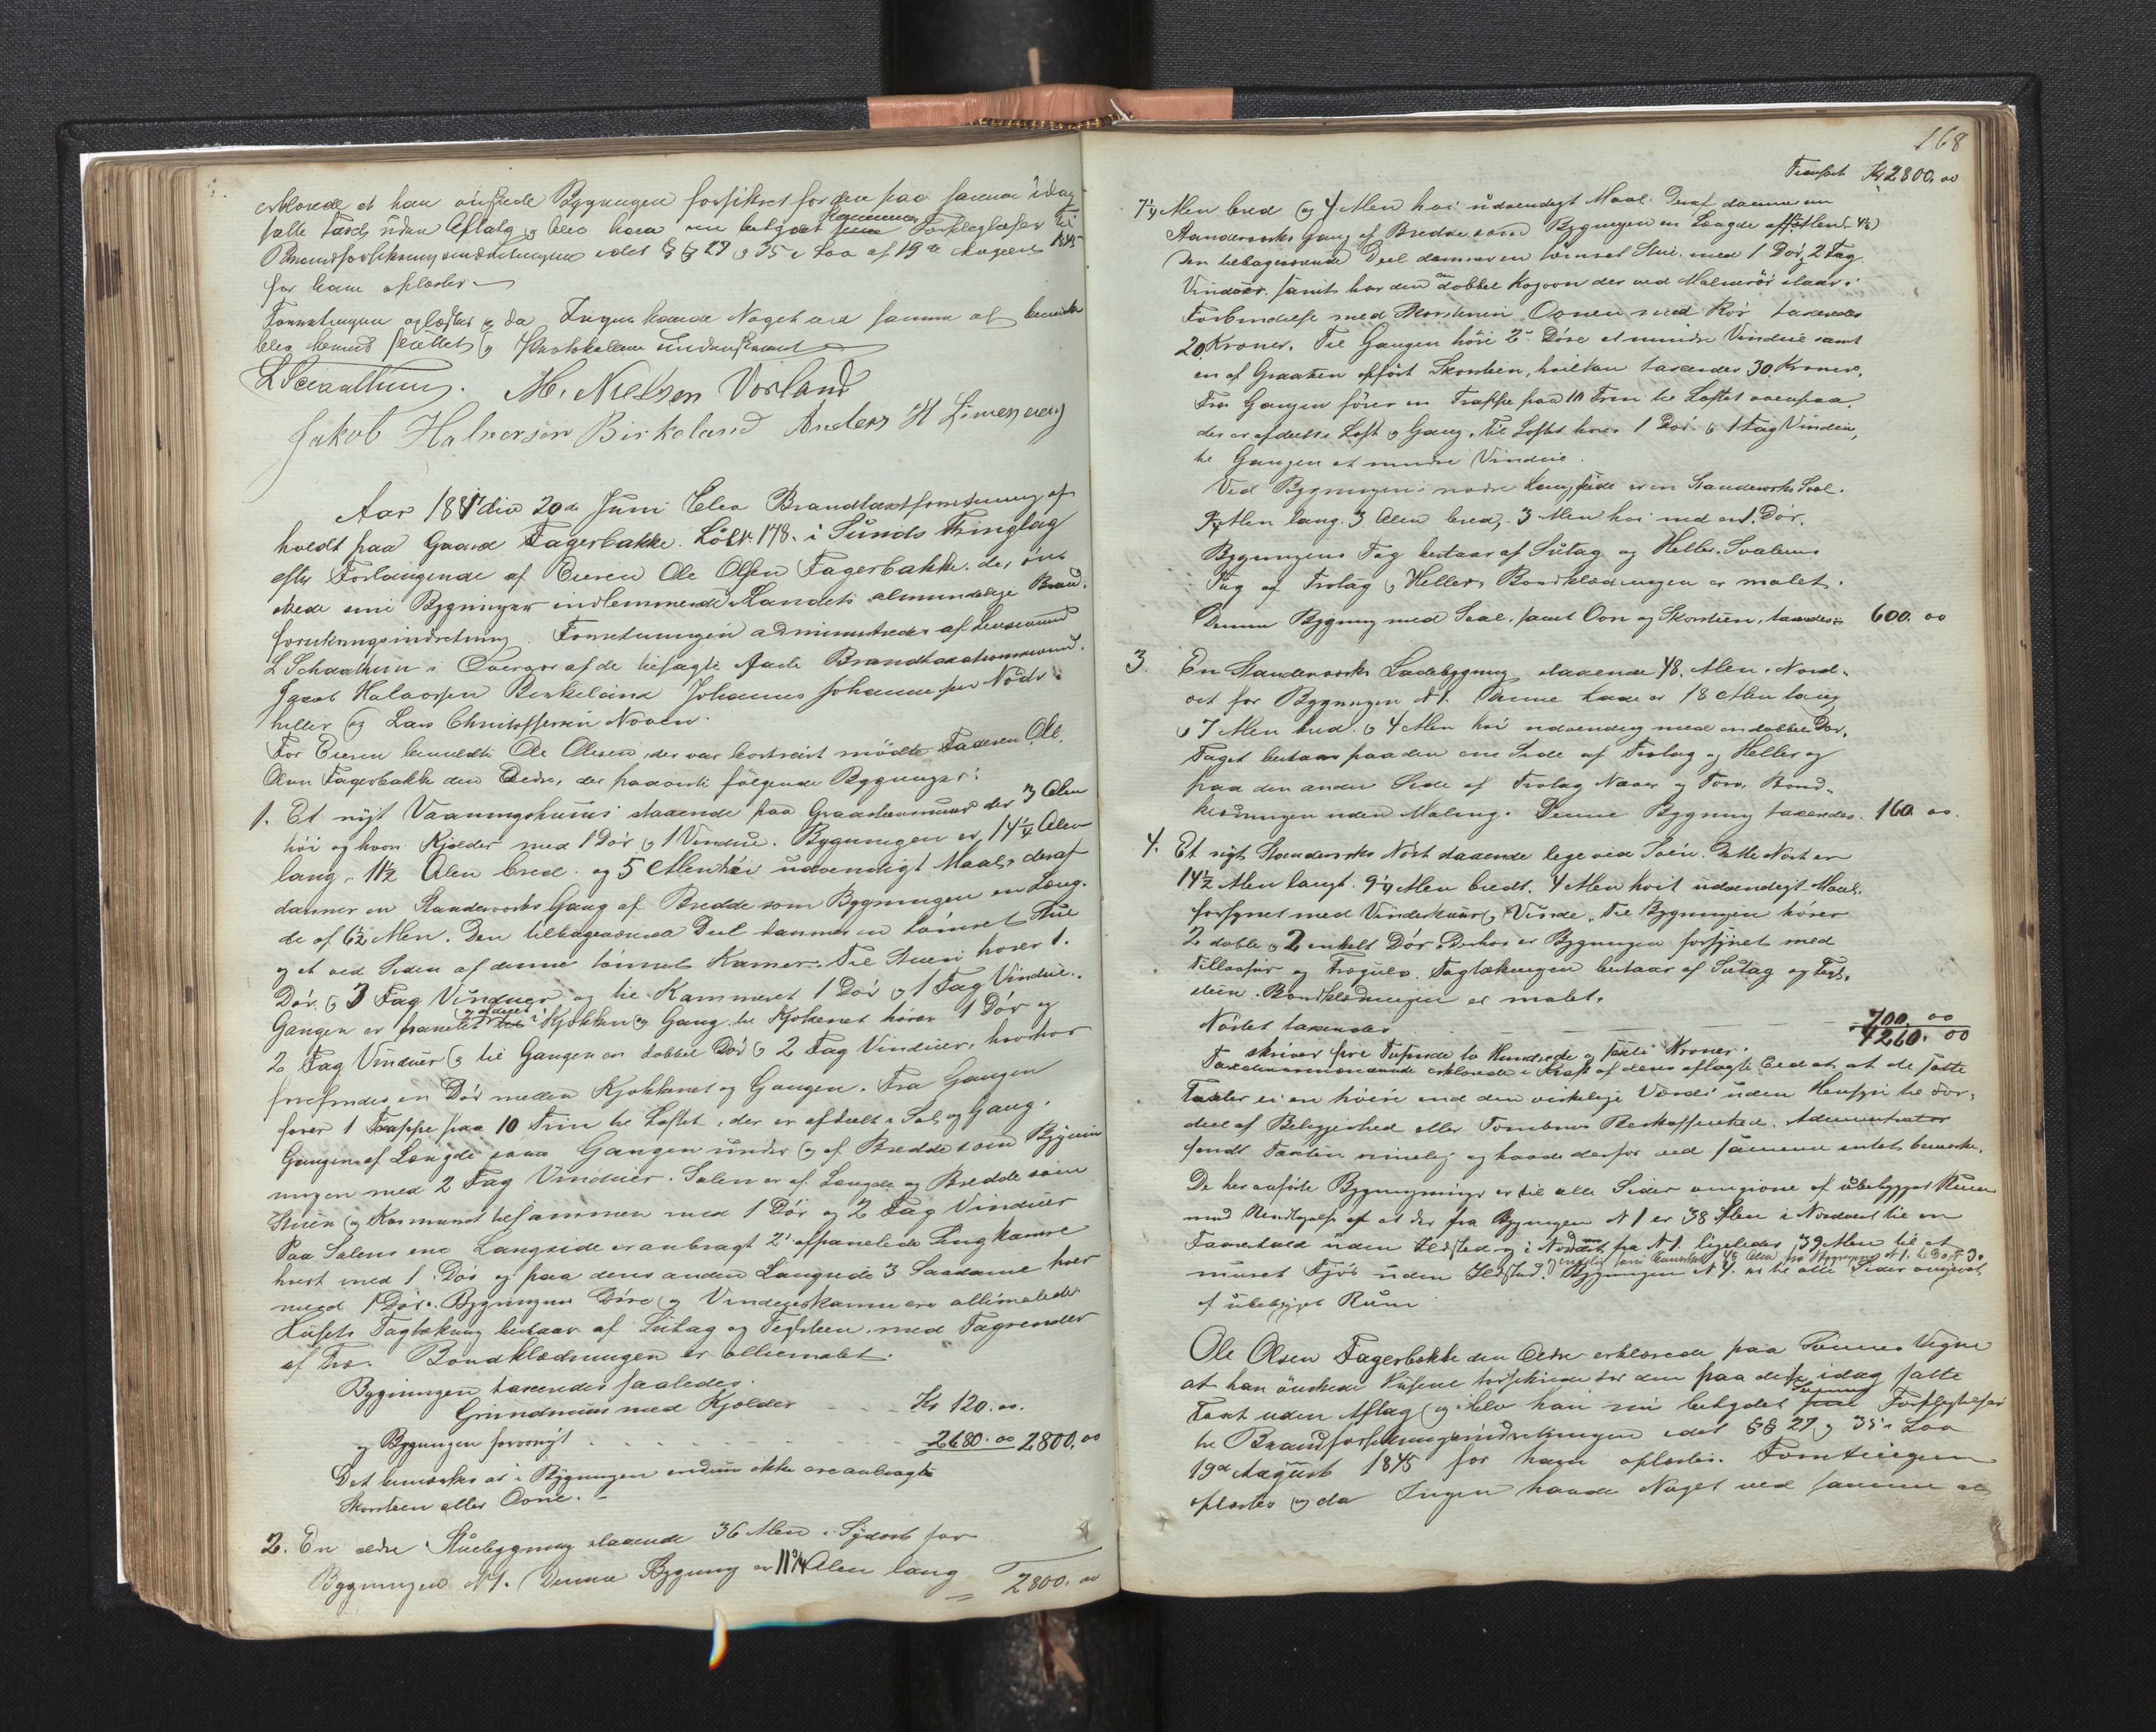 erklærede at han ønskede Bygningen forsikret for den paa samme idag
satte Taxt uden Afslag og blev ham nu betydet Kammer Forpligtelser til
Brandforsikringsindretningen idet §§ 27 og 35 i Lov af 19de August 1845
for ham oplæstes
Forretningen oplæstes og da Ingen havde Noget ved samme at bemærke
blev den sluttet og Protokollen underskrevet
L Schaathun. M. Nielsen Vorland
Jakob Halversen Birkeland Anders H Limesvey
Aar 1881 den 20de Juni blev Brandtaxtforretning af
holdt paa Gaard Fagerbakke Løbn. 178. i Sunds Thinglag
efter Forlangende af Eieren Ole Olsen Fagerbakke, der øns
skede sine Bygninger indlemmede i Landets almindelige Brand
forsikringsindretning. Forretningen administreredes af Lensmand
L Schaathun i Overvær af de befasgte faste Brandtaxationsmænd.
Jacob Halvorsen Birkeland Johannes Johannessen Nodt
heller og Lars Christoffersen Noven.
For Eieren bemeldte Ole Olsen, der var bortreist mødte Faderen Ole
Olsen Fagerbakke den Ældre, der paaviste følgende Bygninger:
1. Et nyt Vaaningshuus staaende paa Graasteensmuur der 3 Alen
høi og hvori Kjelder med 1 Dør og 1 Vindue. Bygningen er 14¼ Alen
lang, 11½ Alen bred og 5 Alen høi udvendigt Maal, deraf
danner en Standværks Gang af Bredde som Bygningen en Læng-
de af 6½ Alen. Den tilbageværende Deel dannes en tømret Stue
og et ved Siden af denne tømret Kamer. Til Stuen hører 1.
Dør og 3 Fag Vinduer og til Kammeret 1 Dør og 1 Fag Vindue.
Gangen er panelet og afdeget i Kjøkken og Gang. til Kjøkenet hører 1 Dør og
2 Fag Vinduer og til Gangen en dobbel Dør og 2 Fag Vinduer, hvorhos
forefindes en Dør mellem Kjøkkenet og Gangen. Fra Gangen
fører 1 Trappe paa 10 Trin til Loftet, der er afdeelt i Sal og Gang.
Gangen af Længde som Gangen under og af Bredde som Bygnin
ningen med 2 Fag Vinduer. Salen er af Længde og Bredde som
Stuen og Kammeret tilsammen med 1 Dør og 2 Fag Vinduer
Paa Salens ene Langside er anbragt 2 afpanelede Sengkamre
hvert med 1 Dør og paa dens anden Langside 3 Saadanne hver
med 1 Dør. Bygningens Døre og Vindueskarme ere alliemalede
Husets Tagtækning bestaar af Sutag og Teglsteen med Tagrender
af Træ. Bordklædningen er alliemalet.
Bygningen taxeredes saaledes.
Grundmuur med Kjelder Kr 120.00.
og Bygningen forøvrigt 2680.00 2800,00
Det bemærkes at i Bygningen endnu ikke ere anbragte
Skorsteen eller Ovne.
2. En ældre Stuebygning staaende 36 Alen i Sydost for
Bygningen N 1. Denne Bygning er 11¾ Alen lang
2800.00
168
Transport Kr 2800.00
7¼ Alen bred og 4 Alen høi udvendigt Maal. Deraf danner en
Standværks gang af Bredde som Bygningen en Længde af Alen (4½)
Den tilbageværende Deel danner en tømret Stue med 1 Dør, 2 Fag
Vinduer. samt har den en dobbel Kogovn der ved Malmrør staar i
Forbindelse med Skorstenen Ovnen med Rør taxeredes
20 Kroner. Til Gangen høre 2 Døre et mindre Vindue samt
en af Graasten opført Skorsteen, hvilken taxeredes 30 Kroner.
Fra Gangen fører en Trappe paa 10 Trin til Loftet ovenpaa.
der er afdeelt i Loft og Gang. Til Loftet hører 1 Dør og 1 Fag Vindue,
til Gangen et mindre Vindue.
Ved Bygningens nordre Langside er en Standværks Sval.
Alen lang 3 Alen bred, 3 Alen høi med en Dør.
Bygningens Tag bestaar af Sutag og Heller. Svalens
Tag af Trotag og Heller. Bordklædningen er malet.
Denne Bygning med Sval, samt Ovn og Skorsteen, taxeredes 600.00
3. En Standværks Ladebygning staaende 48 Alen i Nord-
ost for Bygningen N 1. Denne Lade er 18 Alen lang
og 7 Alen bred og 4 Alen høi udvendig med en dobbel Dør.
Taget bestaar paa den ene Side af Trotag og Heller og
paa den anden Side af Trotag Næver og Torv, Bord-
klædningen uden Maling. Denne Bygning taxeredes 160.00.
4. Et nyt Standværks Nøst staaende lige ved Søen. Dette Nøst er
14½ Alen langt. 9¼ Alen bredt. 4 Alen høit udvendigt Maal.
forsynet med Vindskuur og Vinde. Til Bygningen hører
2 doble og 2 enkelt Dør. Derhos er Bygningen forsynet med
Tillofter og Trægulv. Tagtækningen bestaar af Sutag og Tegl-
steen. Bordklædningen er malet.
Nøstet taxeredes 700.00
4260.00
skriver fire Tusinde to Hundrede og sexti Kroner.
Taxationsmændene erklærede i Kraft af deres aflagte Eed at, at de satte
Taxter ei ere høiere end den virkelige Værdi uden Hensyn til For-
deel af Beliggenhed eller Tomtens Beskaffenhed. Administrator
fandt Taxten rimelig og havde derfor ved samme intet bemærke.
De her anførte Bygninger er til alle Sider omgivne af ubebygget Ruum
med Undtagelse af at der fra Bygningen N 1 er 38 Alen i Nordvest til en
Fæhuus uden Ildsted og i Nordost fra N 1. ligeledes 39 Alen til et
muret Fjøs uden Ildsted. Bygningen N 4. er til alle Sider omgivet
af ubebygget Rum
Ole Olsen Fagerbakke den Ældre erklærede paa Sønnens Vegne
at han ønskede Husene forsikrede for den paa disse idag satte
Taxt uden Afslag og blev han nu betydet Forpligtelser
til Brandforsikringsindretningen idet §§ 27 og 35 i Lov
19de August 1845 for ham oplæstes. Forretningen
oplæstes og da Ingen havde Noget ved samme at